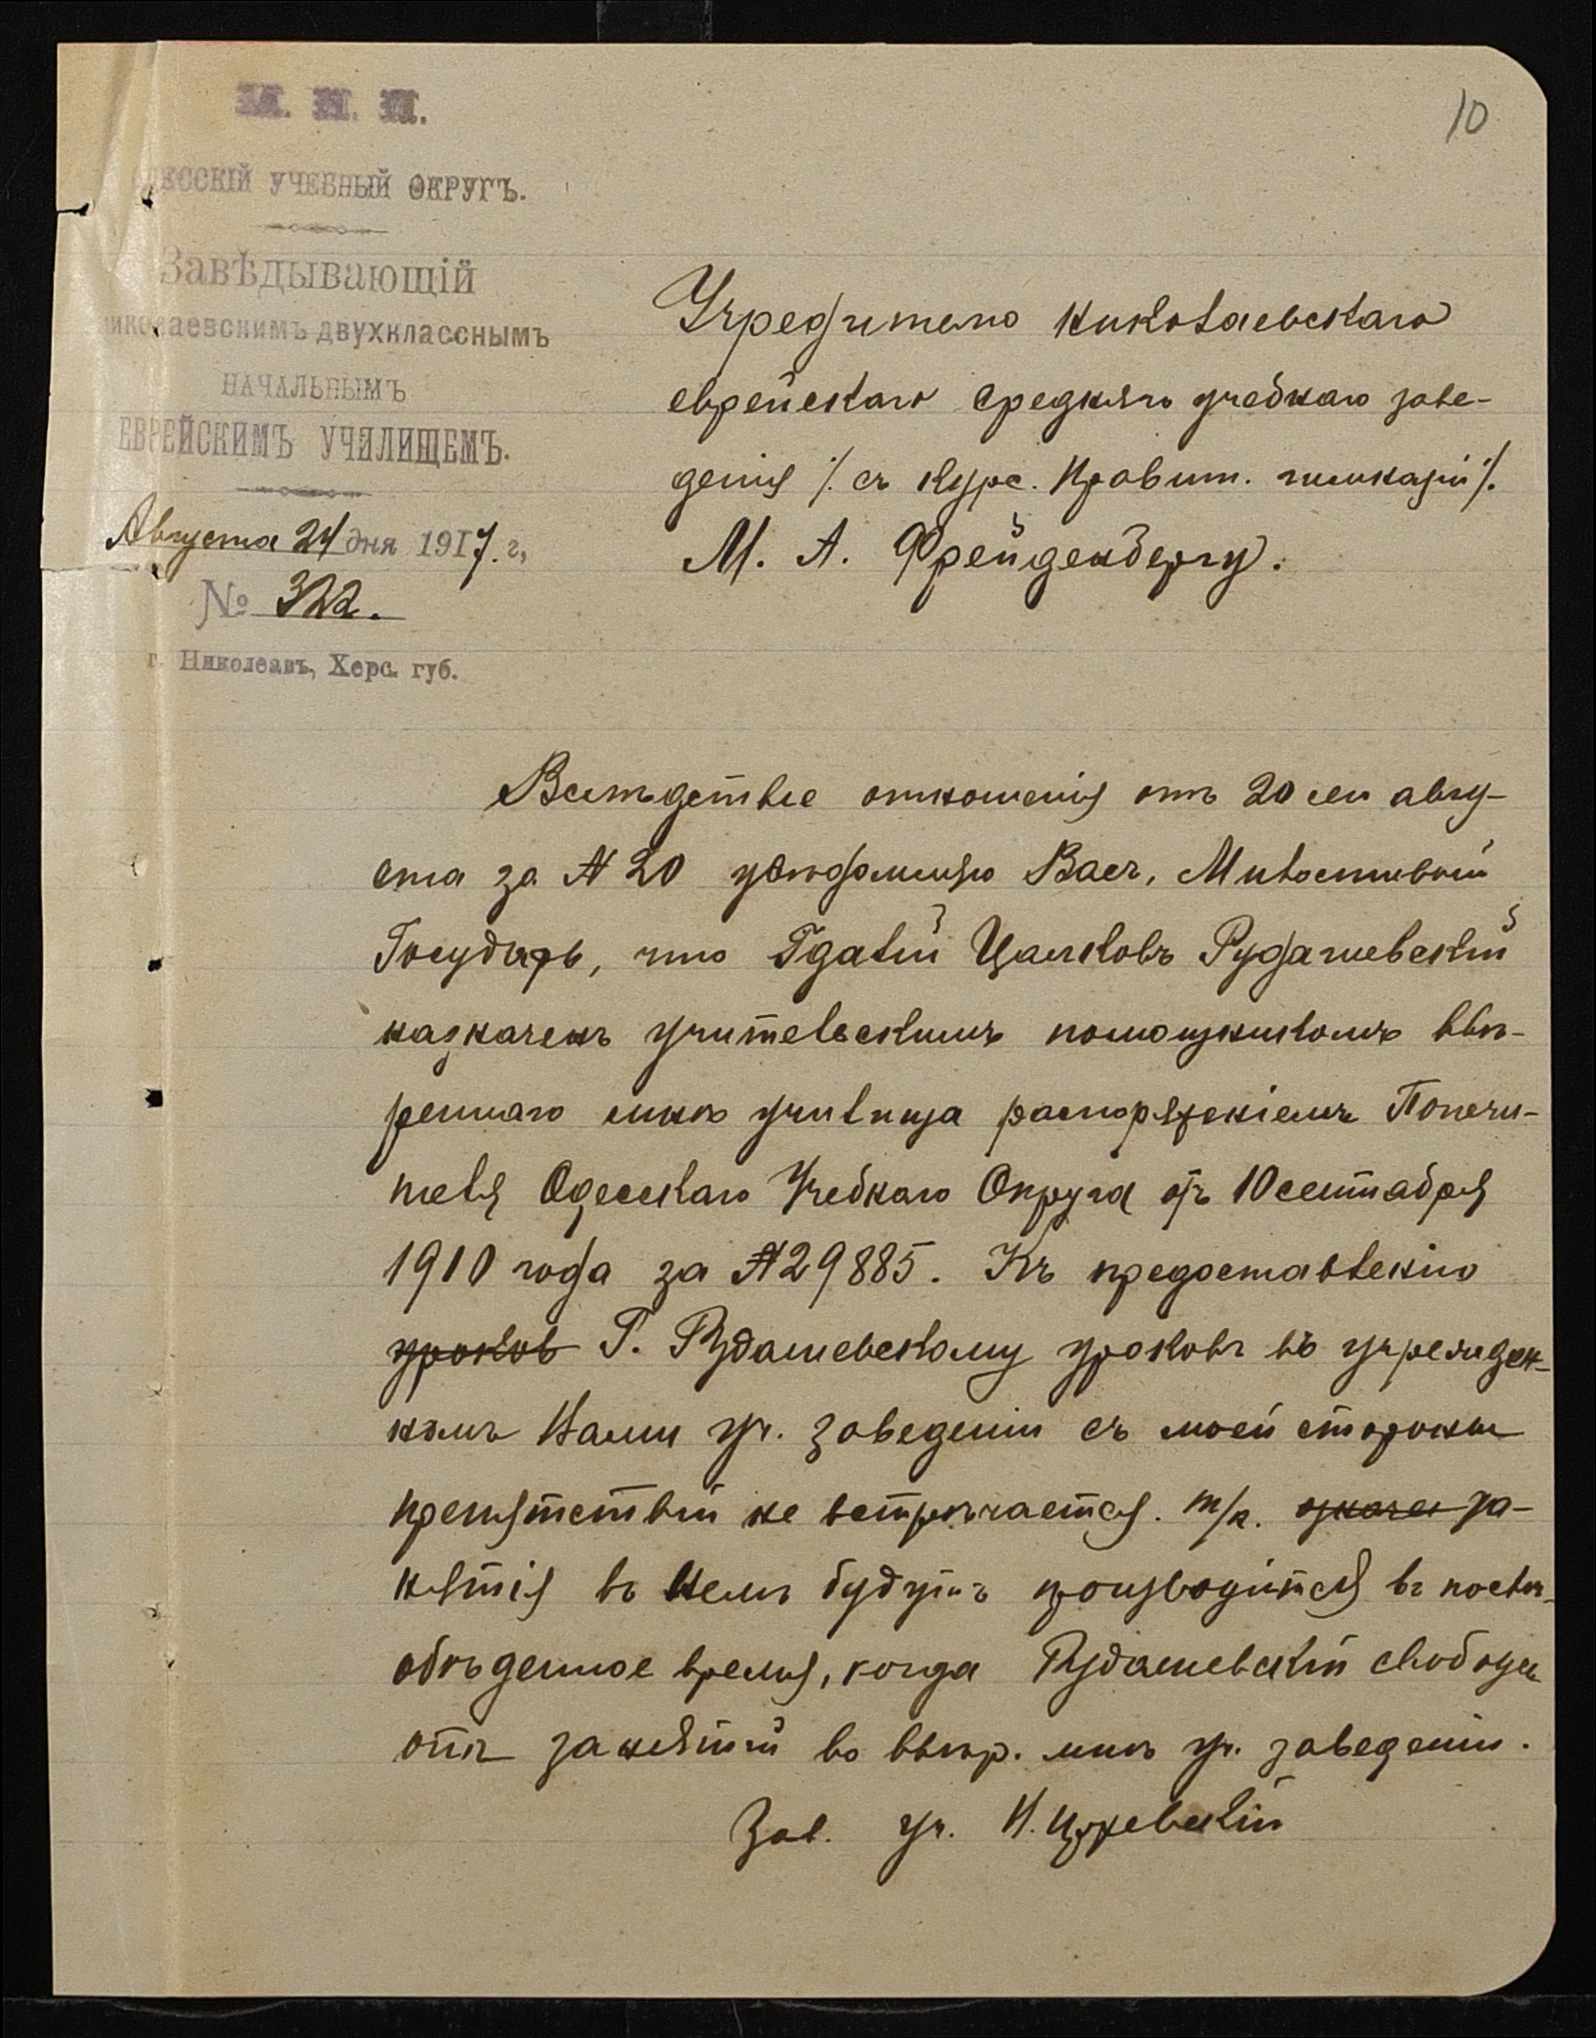 10
М. Н. П.
ОДЕССКІЙ УЧЕБНЫЙ ОКРУГЪ.
Завѣдывающій
Николаевскимъ двухкласснымъ
НАЧАЛЬНЫМЪ
ЕВРЕЙСКИМЪ УЧИЛИЩЕМЪ.
Августа 24 дня 1917. г.,
№ 322.
г. Николаевъ, Херс. губ.
Учредителю Николаевскаго
еврейскаго средняго учебнаго заве-
денія /. съ курс. Правит. гимназій /.
М. А. Фрейденбергу.
Вслѣдствіе отношенія отъ 20 сего авгу-
ста за № 20 увѣдомляю Васъ, Милостивый
Государь, что Гдалій Цалковъ Рудашевскій
назначенъ учительскимъ помощникомъ ввѣ-
реннаго мнѣ училища распоряженіемъ Попечи-
теля Одесскаго Учебнаго Округа отъ 10 сентабря
1910 года за № 29885. Къ предоставленію
уроковъ Г. Рудашевскому уроковъ въ учрежден-
номъ Вами уч. заведеніи съ моей стороны
препятствій не встрѣчается. т/к. за-
нятія въ немъ будутъ производится въ послѣ-
обѣденное время, когда Рудашевскій свободенъ
отъ занятій во ввѣр. мнѣ уч. заведеніи.
Зав. уч.